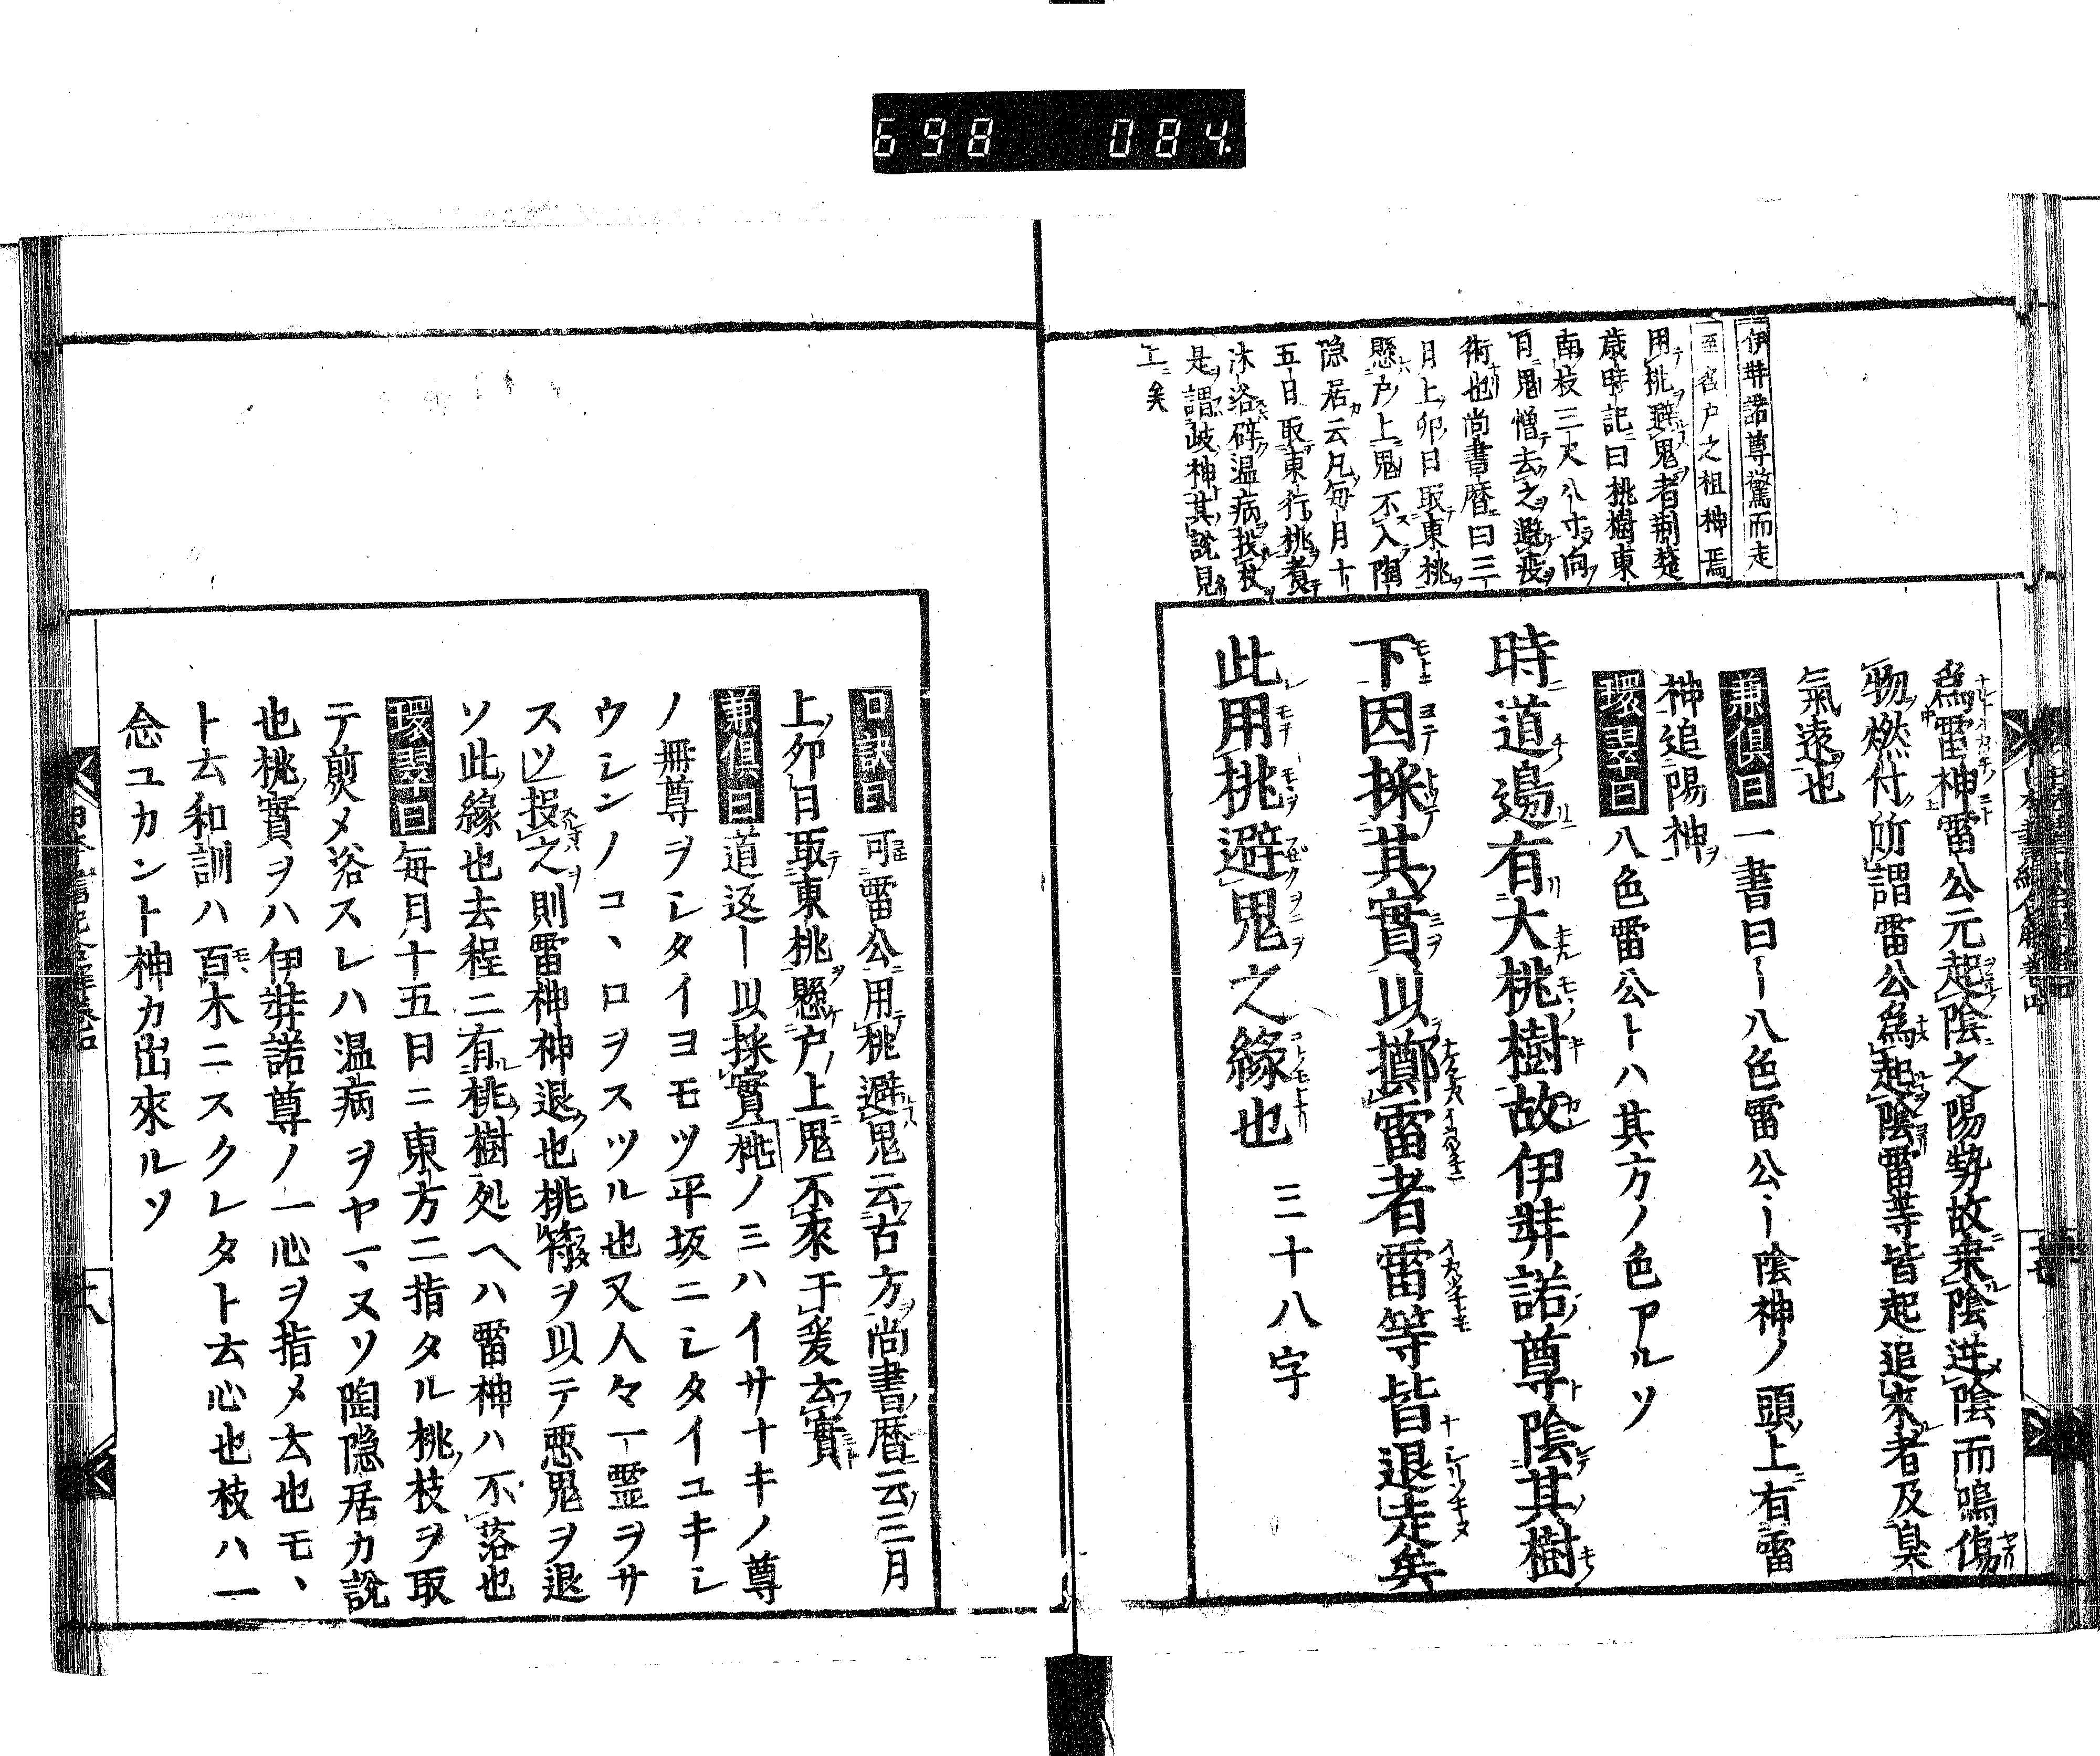 698 084
伊弉諾尊驚而走
至名戸之祖神焉
用桃避鬼者荊楚
歳時記曰桃樹東
南枝三尺八寸向
百鬼憎去之避疫
術也尚書暦曰三
月上卯日取東桃
懸戸上鬼不入陶
隠居云凡毎月十
五日取東行桃煮
沐浴辟温病投杖
是謂岐神其説見
上矣
為雷神雷公元起陰之陽勢故乗陰進陰而鳴傷
物燃付所謂雷公為起陰雷等皆起追来者及臭
氣遠也
兼倶曰一書曰ー八色雷公ー陰神ノ頭上有雷
神追陽神ヲ
環翠曰八色雷公トハ其方ノ色アルソ
時道邊有大桃樹故伊弉諾尊陰其樹
下因採其實以擲雷者雷等皆退走矣
此用桃避鬼之緣也 三十八字
口訣曰可雷公用桃避鬼云古方尚書暦云三月
上卯日取東桃懸戸上鬼不來于爰玄實
兼倶曰道返ー以採實桃ノミハイサナキノ尊
ノ冊尊ヲシタイヨモツ平坂ニシタイユキシ
ウシンノコヽロヲスツル也又人々一霊ヲサ
スソ投之則雷神神退也桃符ヲ以テ悪鬼ヲ退
ソ此縁也去程ニ有桃樹処ヘハ雷神ハ不落也
環翠曰毎月十五日ニ東方ニ指タル桃枝ヲ取
テ煎メ浴スレハ温病ヲヤマヌソ陶隠居カ説
也桃實ヲハ伊弉諾尊ノ一心ヲ指メ玄也モヽ
ト玄和訓ハ百木ニスクレタト玄心也枝ハ一
念ユカント神カ出來ルソ
十八